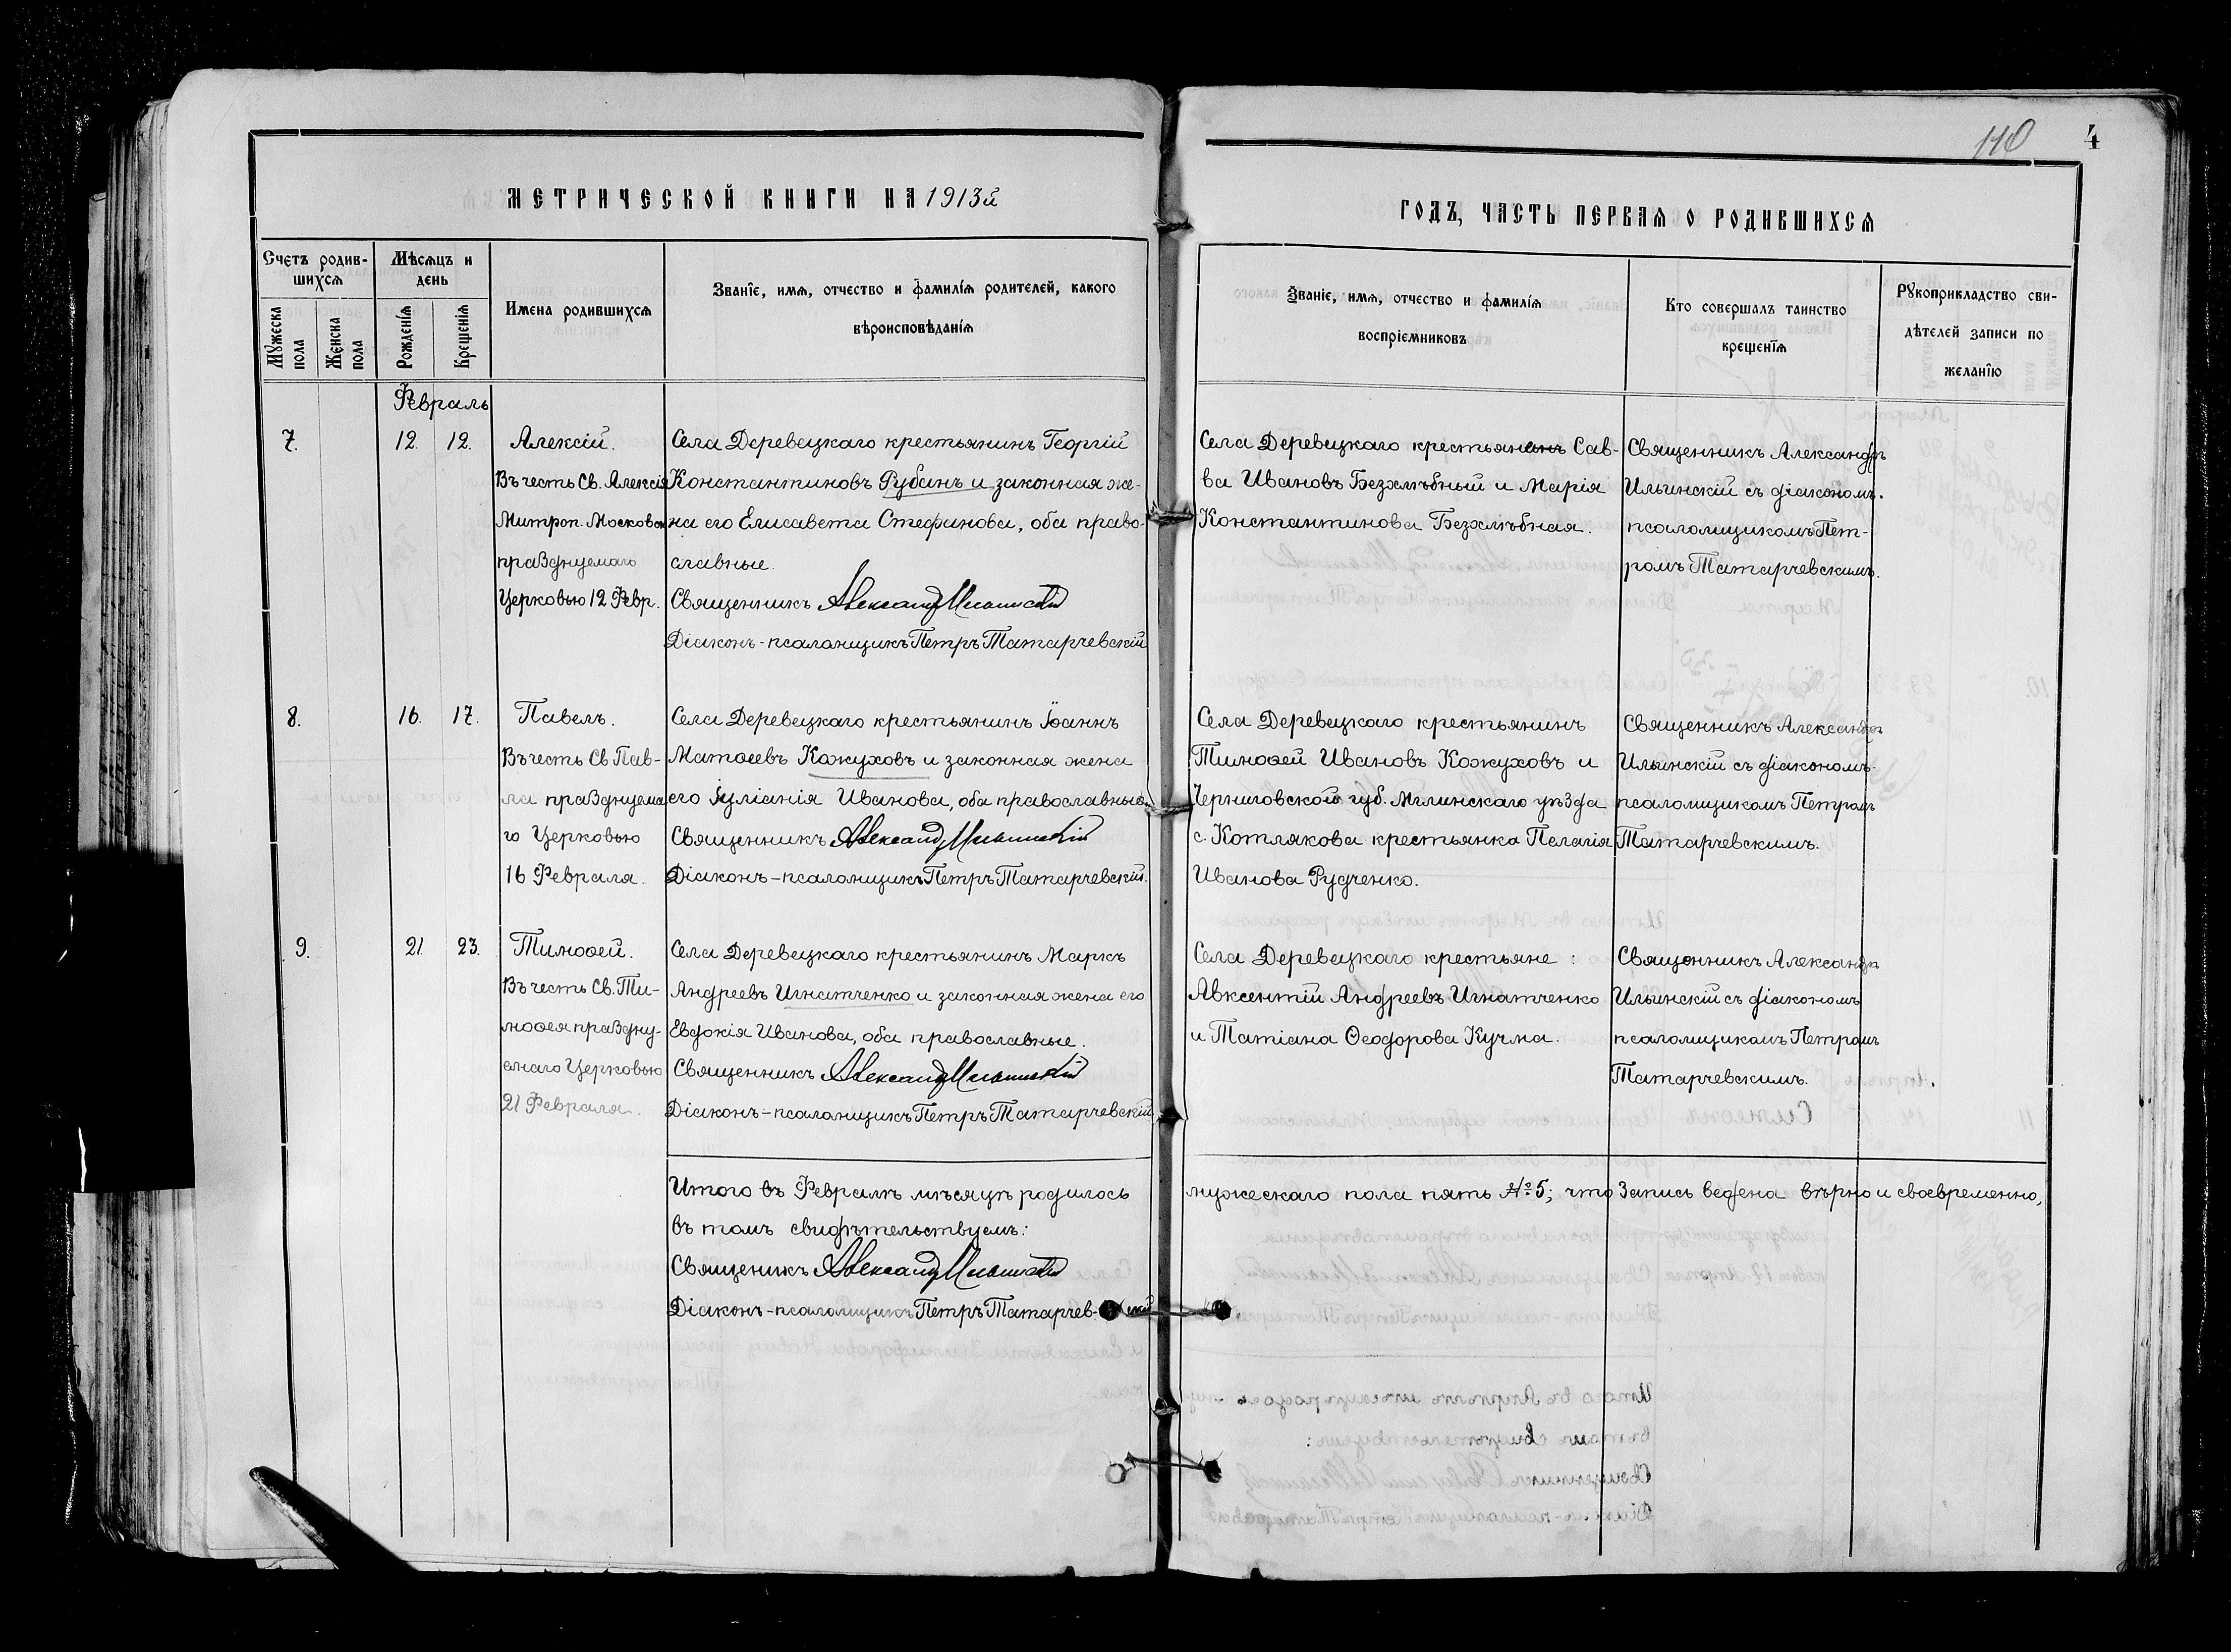 110
4
МЕТРИЧЕСКОЙ КНИГИ НА 1913й
ГОДЪ, ЧАСТЬ ПЕРВАЯ О РОДИВШИХСЯ
Счетъ родив-
шихся
Мужеска
пола
Женска
пола
Мѣсяцъ и
день
Рожденія
Крещенія
Имена родившихся
Званіе, имя, отчество и фамилія родителей, какого
вѣроисповѣданія
Званіе, имя, отчество и фамилія
воспріемниковъ
Кто совершалъ таинство
крещенія
Рукоприкладство сви-
дѣтелей записи по
желанію
Февраль
7. 12. 12.
Алексій.
Въ честь Св. Алексія
Митроп. Московск
празднуемаго
Церковью 12 Февр.
Села Деревецкаго крестьянинъ Георгій
Константиновъ Рубанъ и законная же-
на его Елисавета Стефанова, оба право-
славные.
Священникъ Александръ Ильинскій
Діаконъ-псаломщикъ Петръ Татарчевскій
Села Деревецкаго крестьянинъ Сав-
ва Ивановъ Безхлѣбный и Марія
Константинова Безхлѣбная.
Священникъ Александръ
Ильинскій съ діакономъ-
псаломщикомъ Пет-
ромъ Татарчевскимъ.
8. 16. 17.
Павелъ.
Въ честь Св Пав-
ла празднуема
го Церковью
16 Февраля.
Села Деревецкаго крестьянинъ Іоаннъ
Матѳеевъ Кожуховъ и законная жена
его Іуліанія Иванова, оба православные.
Священникъ Александръ Ильинскій
Діаконъ-псаломщикъ Петръ Татарчевскій.
Села Деревецкаго крестьянинъ
Тимоѳей Ивановъ Кожуховъ и
Черниговской губ. Мглинскаго уѣзда
с. Котлякова крестьянка Пелагія
Иванова Рудченко.
Священникъ Александръ
Ильинскій съ діакономъ-
псаломщикомъ Петромъ
Татарчевскимъ.
9. 21. 23.
Тимоѳей.
Въ честь Св. Ти-
моѳея праздну-
емаго Церковью
21 Февраля.
Села Деревецкаго крестьянинъ Маркъ
Андреевъ Игнатченко и законная жена его
Евдокія Иванова, оба православные.
Священникъ Александръ Ильинскій
Діаконъ-псаломщикъ Петръ Татарчевскій
Села Деревецкаго крестьяне:
Авксентій Андреевъ Игнатченко
и Татіана Ѳеодорова Кучма.
Священникъ Александръ
Ильинскій съ діакономъ
псаломщикомъ Петромъ
Татарчевскимъ.
Итого въ Февралѣ мѣсяцѣ родилось мужескаго пола пять №5; что запись ведена вѣрно и своевременно,
въ томъ свидѣтельствуемъ:
Священикъ Александръ Ильинскій
Діаконъ-псаломщикъ Петръ Татарчевскій